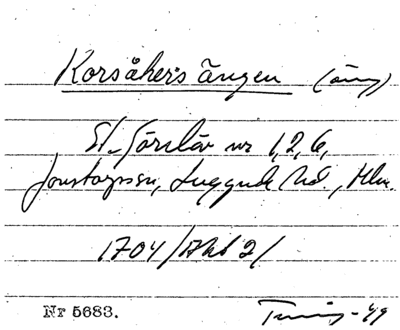 Korsåkers ängen (äng)
St. Görslöv nr 1,2,6,
Jonstorpssn, Luggude hd., Mlm.
1704/Akt 2/
Nr 5683.
-49